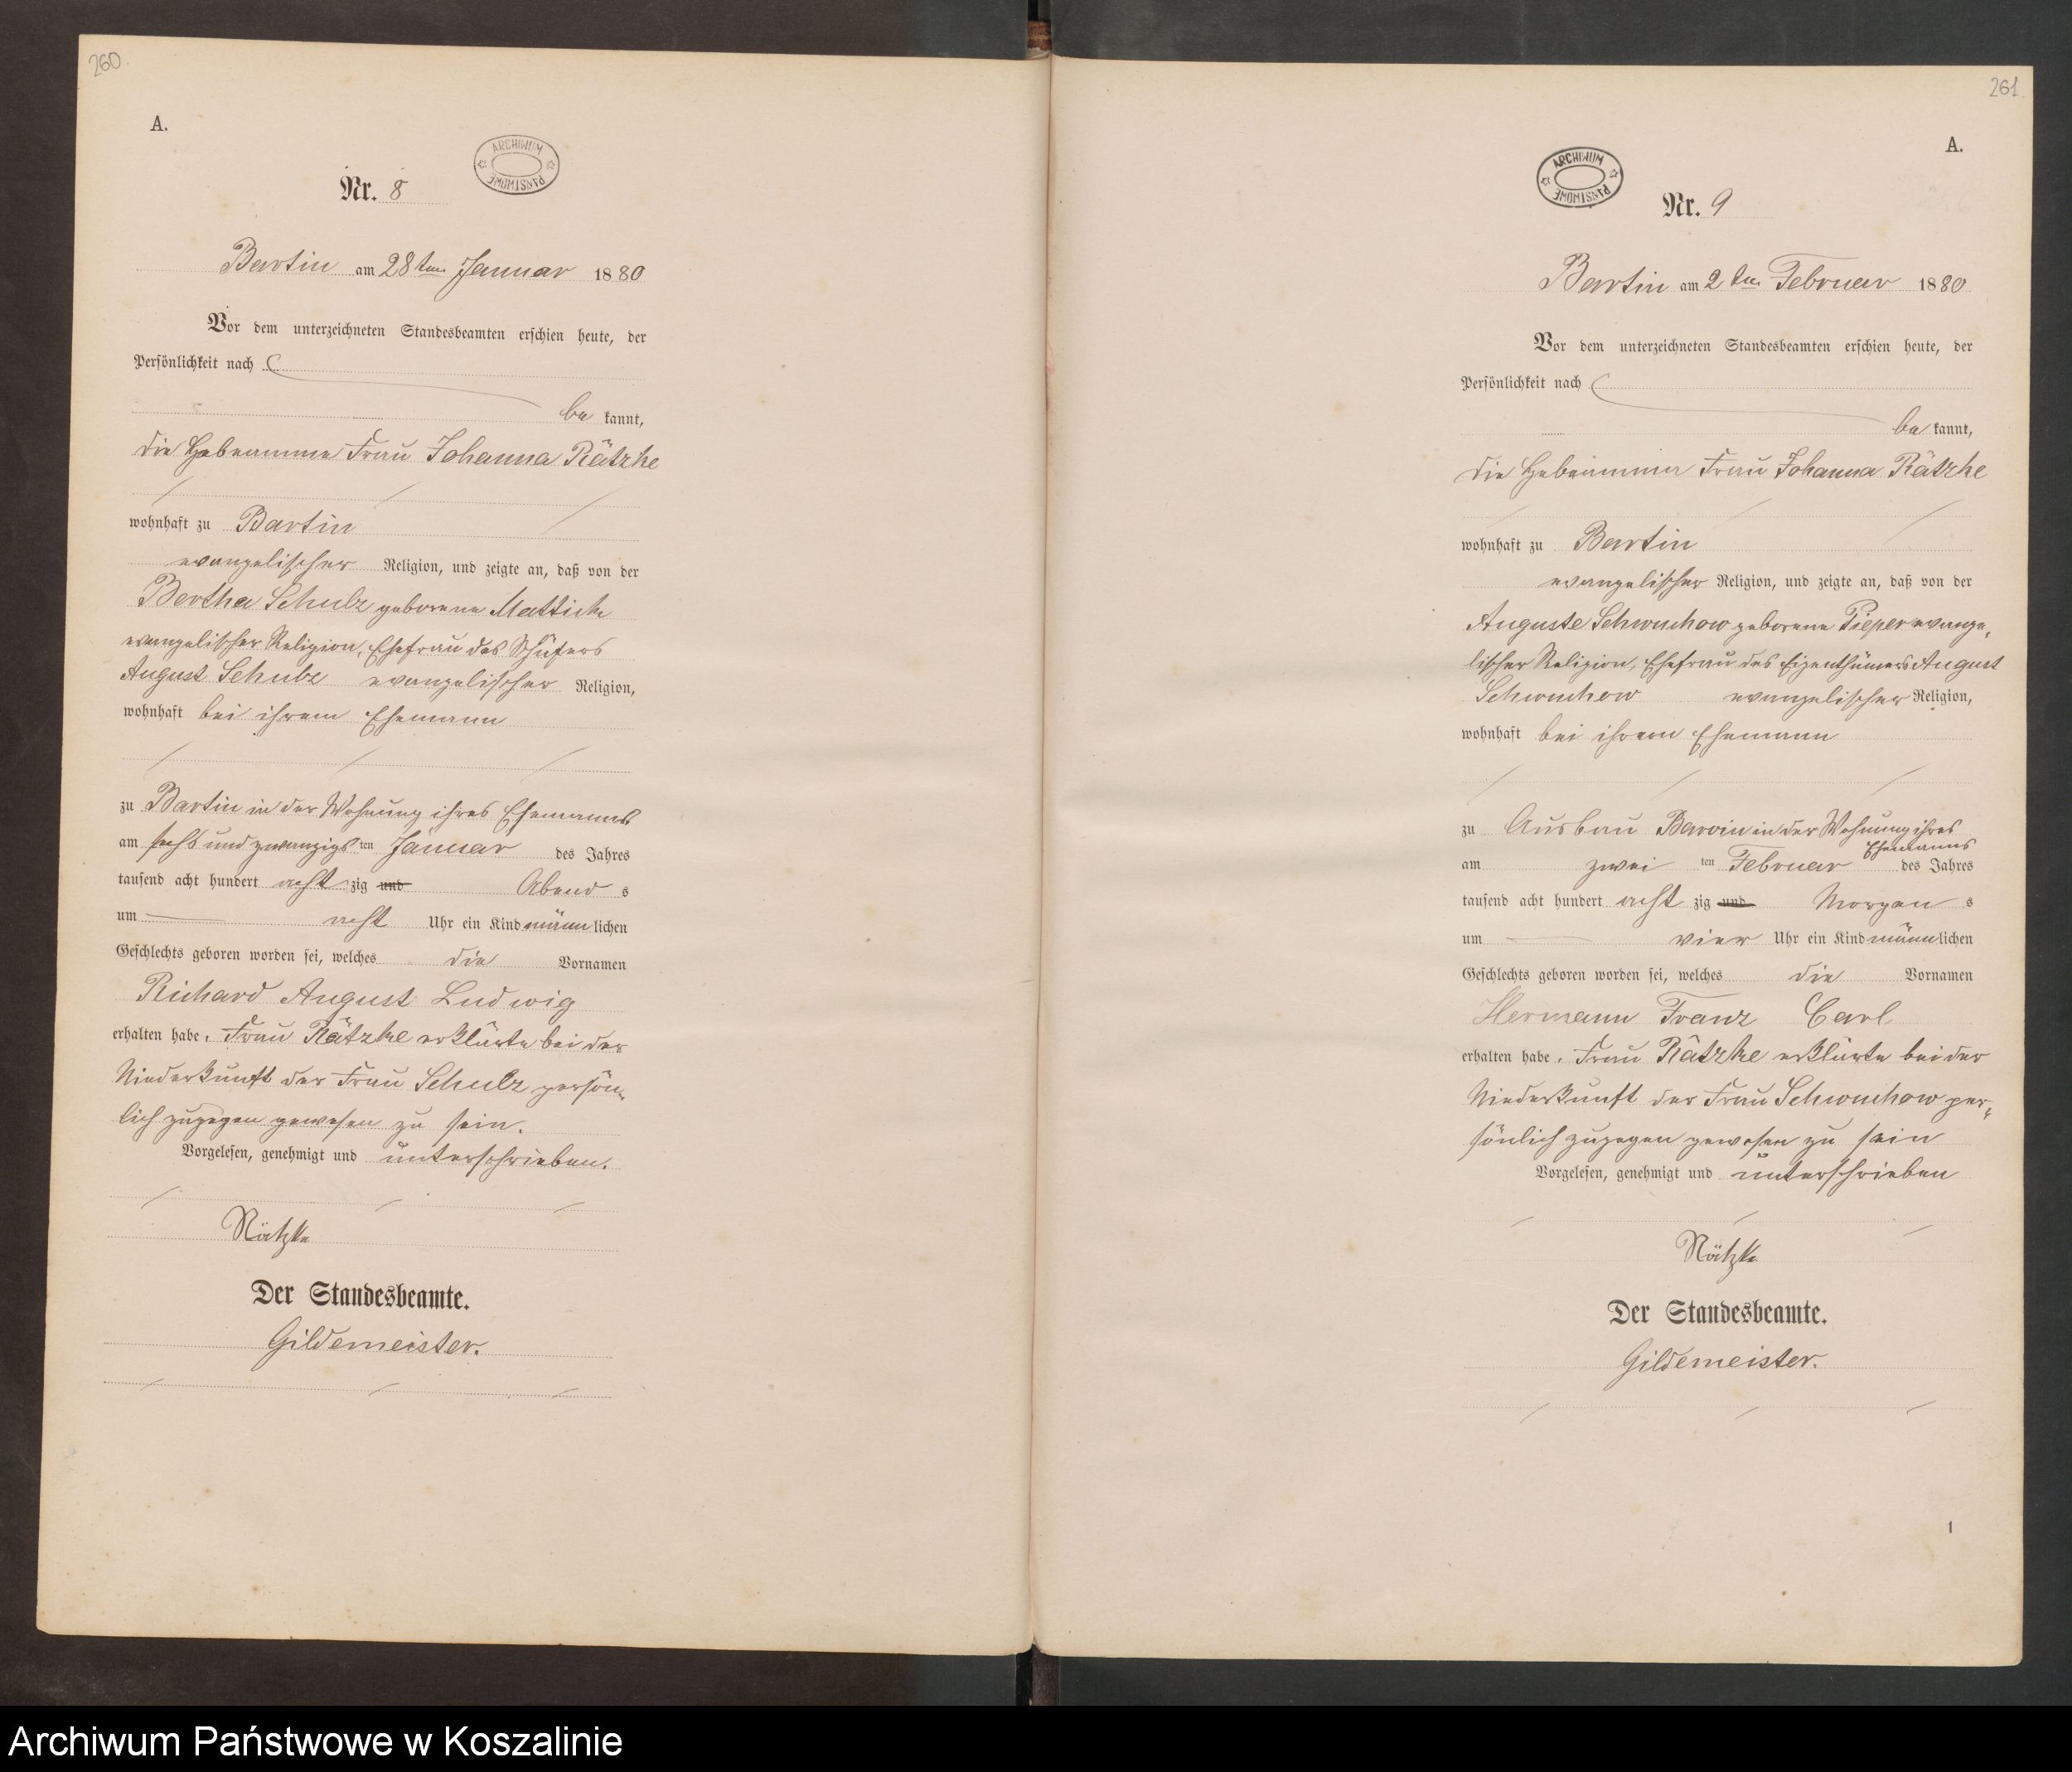 260.
A.
ARCHIWUM PAŃSTWOWE
Nr. 8
Bartin am 28ten Januar 1880
Vor dem unterzeichneten Standesbeamten erschien heute, der
Persönlichkeit nach
be kannt,
die Hebeamme Frau Johanna Rätzke
wohnhaft zu Bartin
evangelischer Religion, und zeigte an, daß von der
Bertha Schulz geborene
evangelischer Religion, Ehefrau des Schäfers
August Schulz evangelischer Religion,
wohnhaft bei ihrem Ehemann
zu Bartin in der Wohnung ihres Ehemanns
am sechs und zwanzigsten Januar des Jahres
tausend acht hundert acht zig und Abend s
um acht Uhr ein Kind männlichen
Geschlechts geboren worden sei, welches die Vornamen
Richard August Ludwig
erhalten habe. Frau Rätzke erklärte bei der
Niederkunft der Frau Schulz persön-
lich zugegen gewesen zu sein.
Vorgelesen, genehmigt und unterschrieben.
Rätzke
Der Standesbeamte.
Gildemeister.
261.
A.
ARCHIWUM PAŃSTWOWE
Nr. 9
Bartin am 2ten Februar 1880
Vor dem unterzeichneten Standesbeamten erschien heute, der
Persönlichkeit nach
be kannt,
die Hebeamme Frau Johanna Rätzke
wohnhaft zu Bartin
evangelischer Religion, und zeigte an, daß von der
Auguste Schwuchow geborene Pieper evange-
lischer Religion, Ehefrau des Eigenthümers August
Schwuchow evangelischer Religion,
wohnhaft bei ihrem Ehemann
zu Ausbau Barvin in der Wohnung ihres
Ehemanns
am zwei ten Februar des Jahres
tausend acht hundert acht zig und Morgen s
um vier Uhr ein Kind männlichen
Geschlechts geboren worden sei, welches die Vornamen
Hermann Franz Carl
erhalten habe. Frau Rätzke erklärte bei der
Niederkunft der Frau Schwuchow per-
sönlich zugegen gewesen zu sein
Vorgelesen, genehmigt und unterschrieben
Rätzke
Der Standesbeamte.
Gildemeister.
1
Archiwum Państwowe w Koszalinie